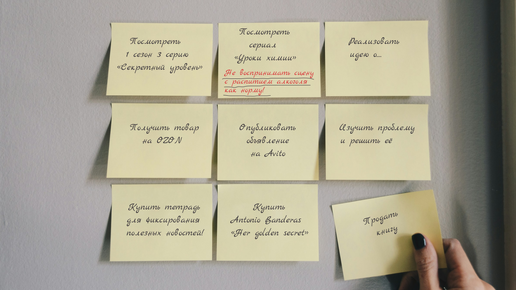 Посмотреть
1 сезон 3 серию
«Секретный уровень»
Посмотреть
сериал
«Уроки химии»
Не воспринимать сцену
с распитием алкоголя
как норму!
Реализовать
идею о...
Получить товар
на OZON
Опубликовать
объявление
на Avito
Изучить проблему
и решить её
Купить тетрадь
для фиксирования
полезных новостей!
Купить
Antonio Banderas
«Her golden secret»
Продать
книгу